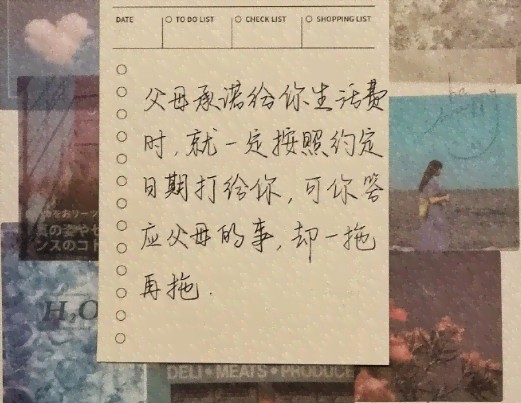 DATE
TO DO LIST
CHECK LIST
SHOPPING LIST
父母承诺给你生活费
时,就一定按照约定
日期打给你,可你答
应父母的事,却一拖
再拖.
H₂O
DELI·MEATS·PRODUCE